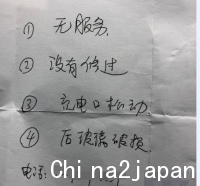 ① 无服务.
② 没有修过
③ 充电口松动.
④ 后玻璃破损.
电话:
China2japan